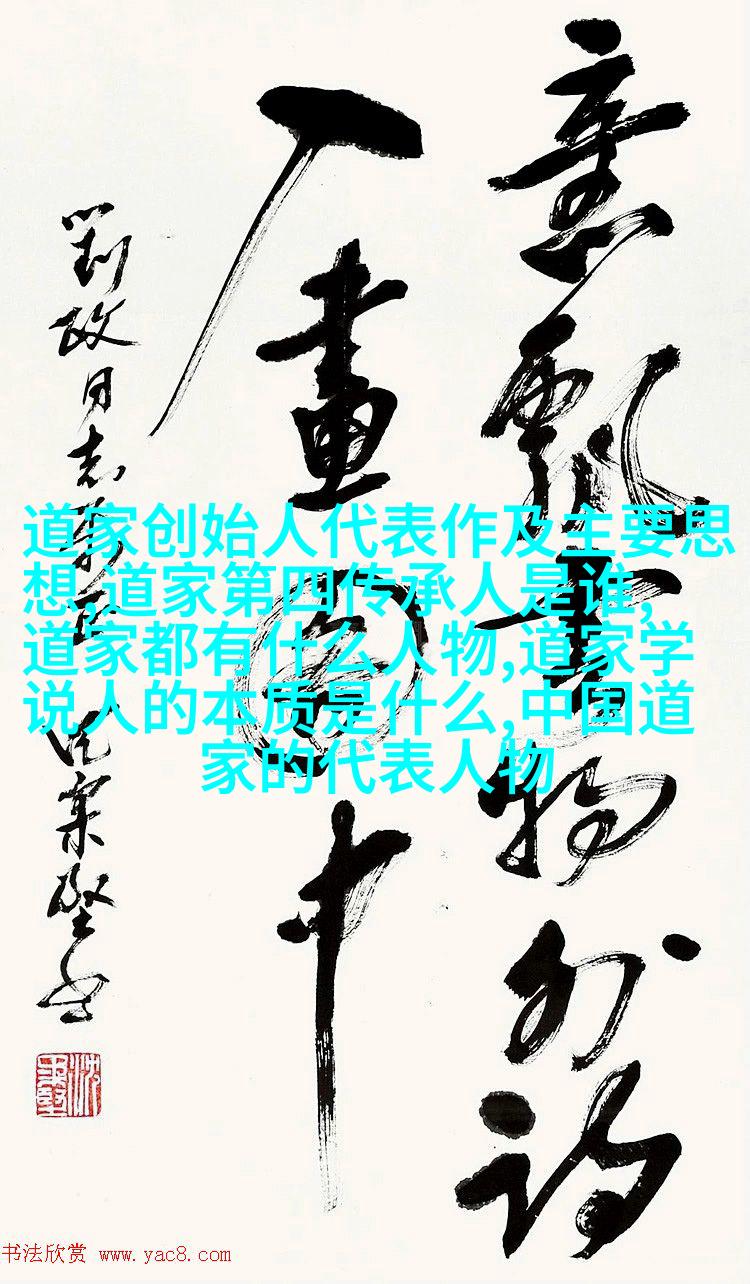 意飄云物外詩
入畫圖中
劉政同志
道家创始人代表作及主要思
想,道家第四传承人是谁,
道家都有什么人物,道家学
说人的本质是什么,中国道
家的代表人物
书法欣赏 www.yac8.com